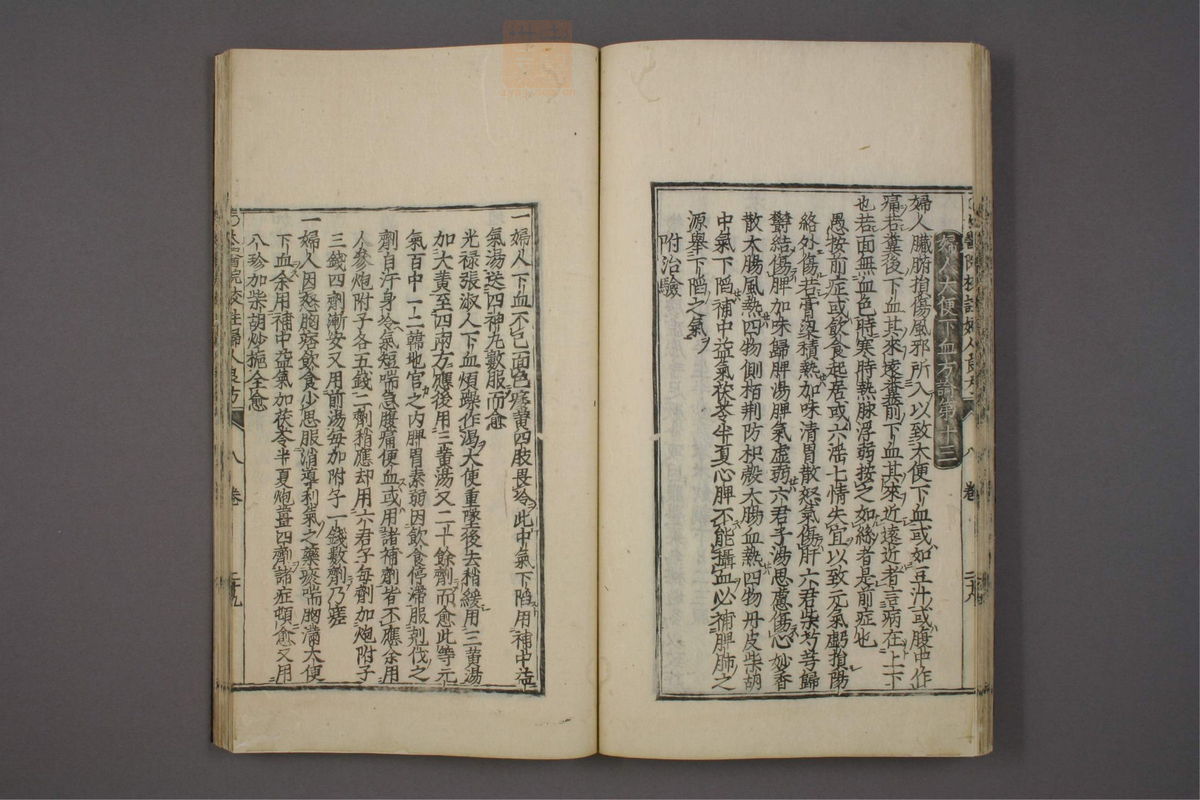 婦人大便下血方論第十三
婦人臟腑損傷風邪所入以致大便下血或如豆汁或腹中作
痛若糞後下血其來遠糞前下血其來近遠近者言病在上下
也若面無血色時寒時熱脉浮弱按之如絲者是前症也
愚按前症或飲食起居或六滛七情失宜以致元氣虧損陽
絡外傷若膏梁積熱加味清胃散怒氣傷肝六君柴芍芎歸
鬱結傷脾加味歸脾湯脾氣虛弱六君子湯思慮傷心妙香
散大腸風熱四物側栢荆防枳殼大腸血熱四物丹皮柴胡
中氣下陷補中益氣茯苓半夏心脾不能攝血必補脾肺之
源舉下陷之氣
附治驗
一婦人下血不已面色痿黃四肢畏冷此中氣下陷用補中益
氣湯送四神丸數服而愈
光禄張淑人下血煩躁作渴大便重墜後去稍緩用三黃湯
加大黃至四兩方應後用三黃湯又二十餘劑而愈此等元
氣百中一二韓地官之内脾胃素弱因飲食停滯服剋伐之
劑自汗身冷氣短喘急腹痛便血或用諸補劑皆不應余用
人參炮附子各五錢二劑稍應却用六君子每劑加炮附子
三錢四劑漸安又用前湯每加附子一錢數劑乃瘥
一婦人因怒胸痞飲食少思服消導利氣之藥痰喘胸滿大便
下血余用補中益氣加茯苓半夏炮薑四劑諸症頓愈又用
八珍加柴胡炒梔全愈
太醫院校註婦人良方
八
卷